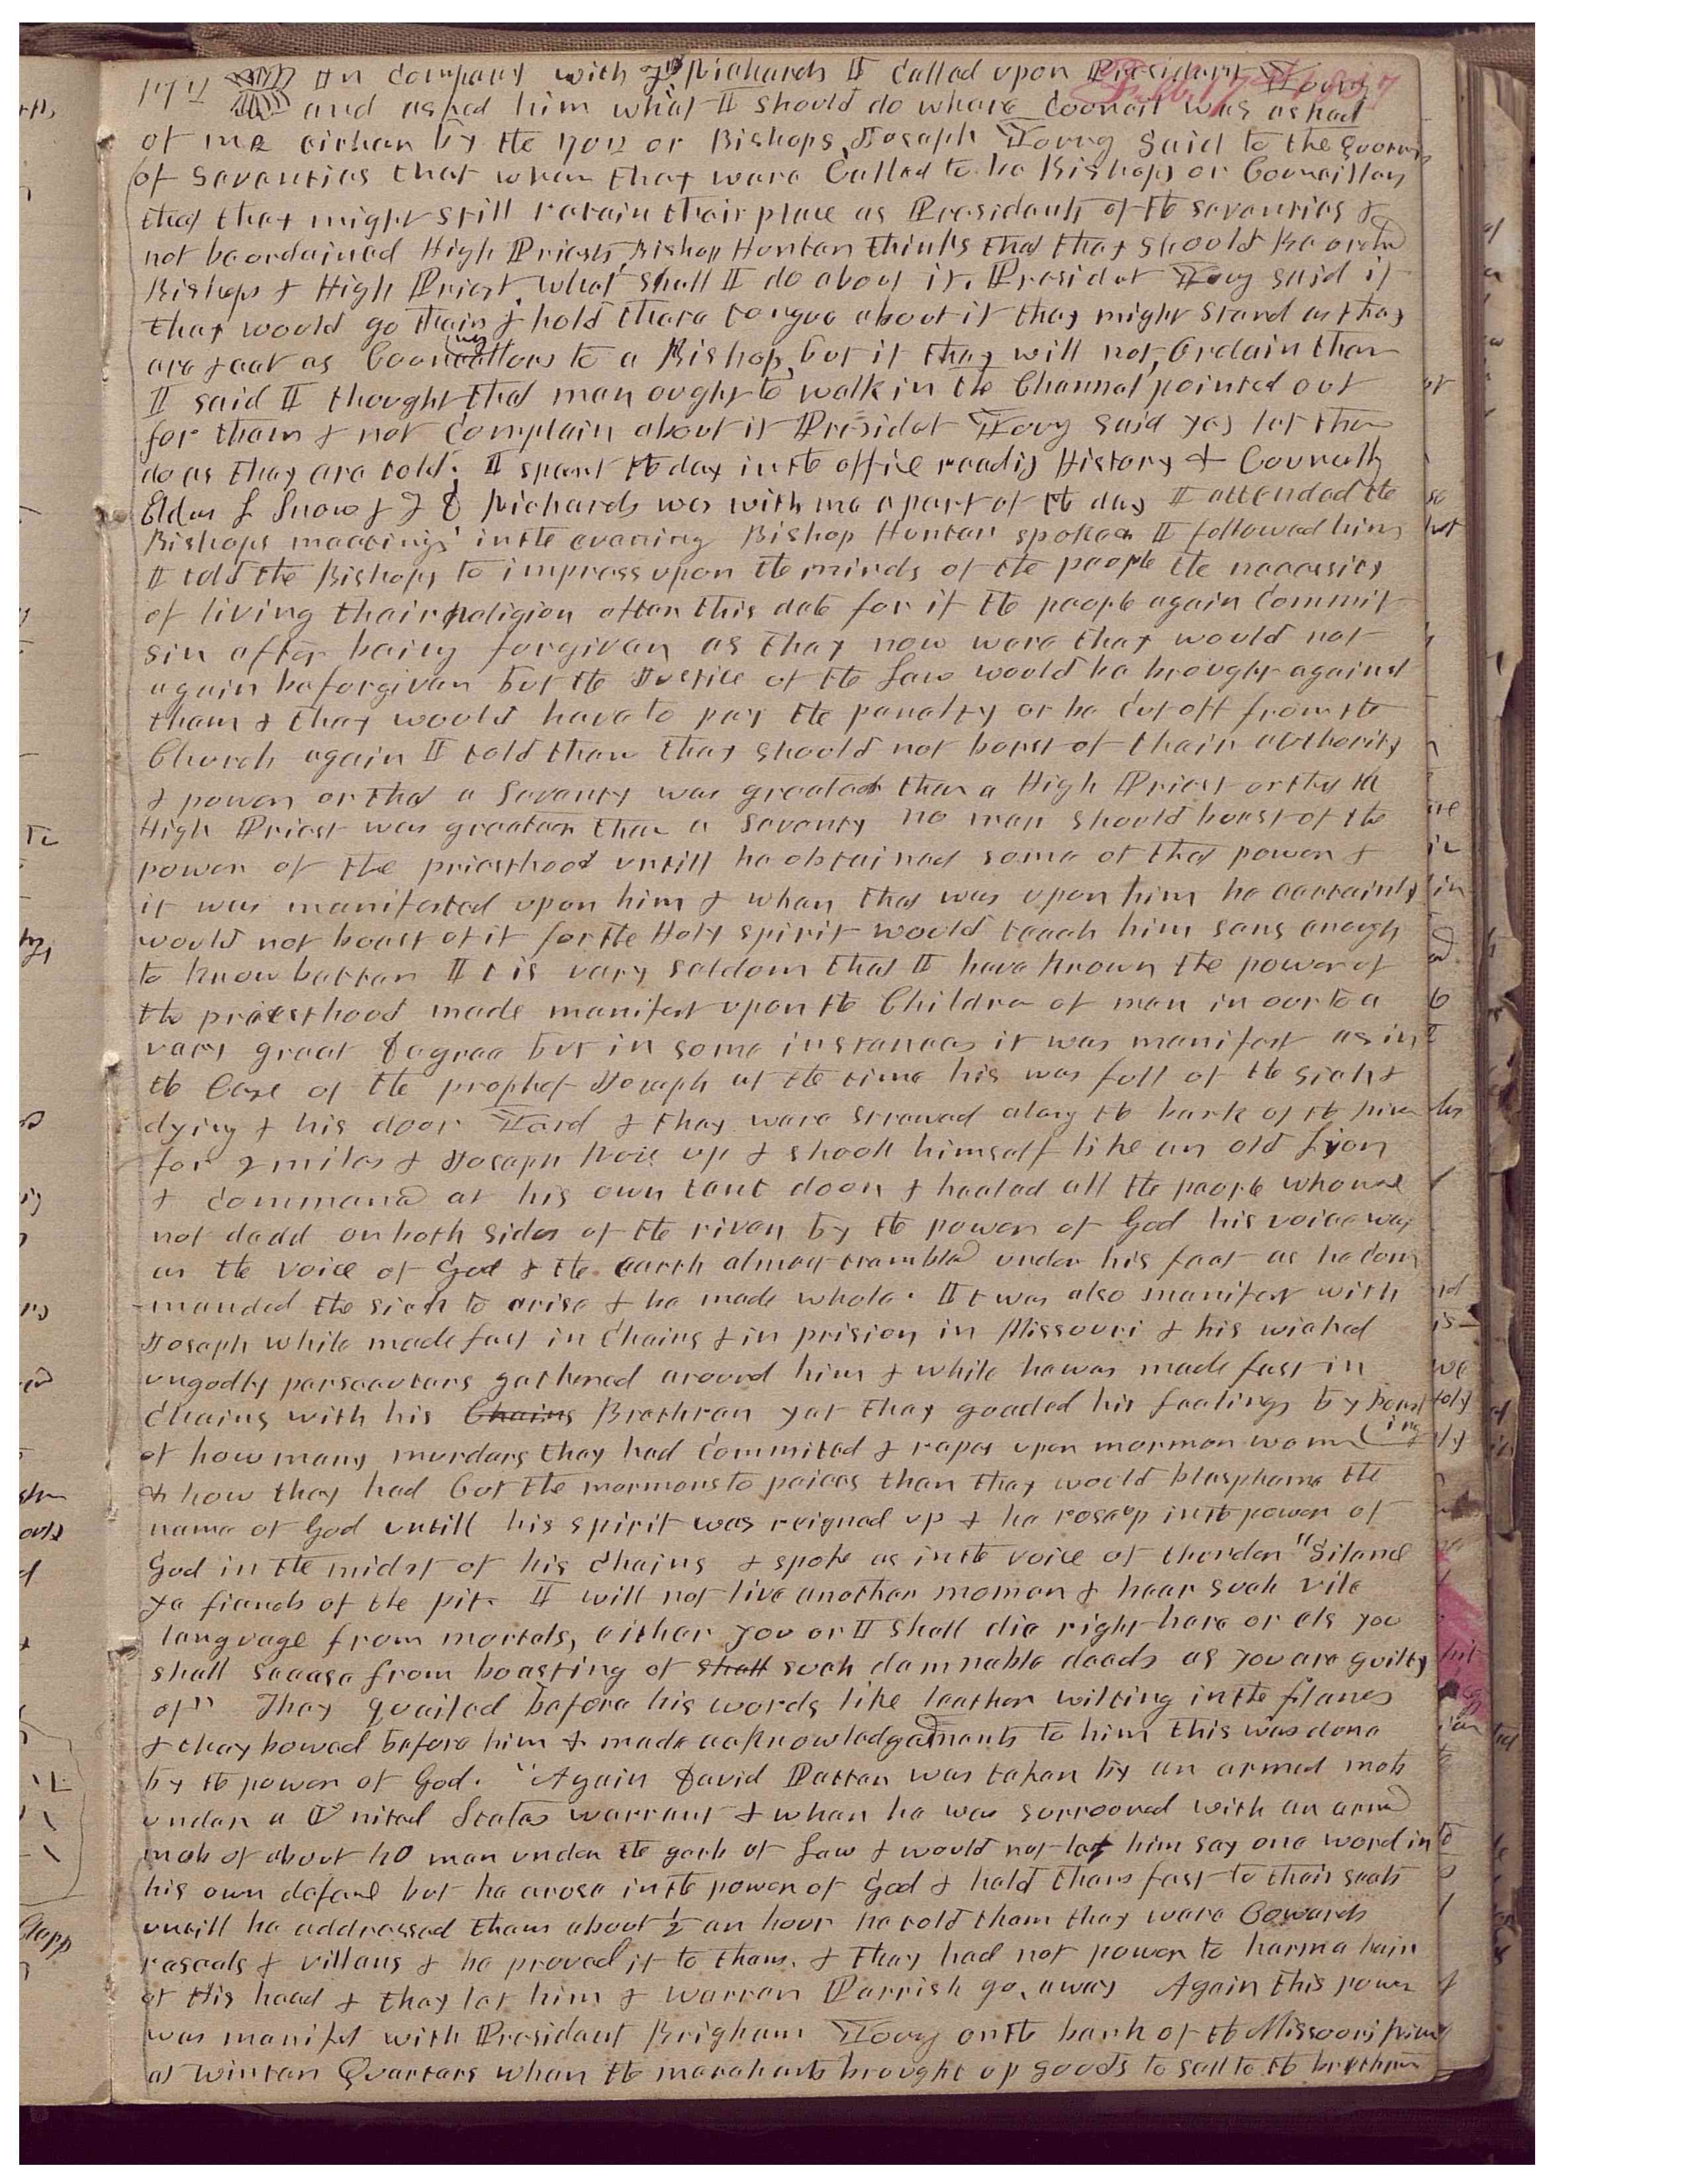 Feb 17th 1857
17th In Company with F D Richards I called upon President Young
and asked him what I should do whare Council was asked
of me either by the 70s or Bishops, Joseph Young said to the Quorums
of Seventies that when they were Called to be Bishops or Councillors
that they might still retain their place as Presidents of the seventies &
not be ordained High Priests, Bishop Hunter thinks that they should be ordained
Bishops & High Priest. what shall I do about it. President Young said if
they would go thair & hold there tongue about it they might stand as they
are & act as Councellors to a Bishop, but if they will not, Ordain them
I said I thought that men ought to walk in the Channel pointed out
for them & not complain about it President Young said yes let them
do as they are told. I spent the day in the office reading History & Councils
Elder L Snow & F D Richards was with me a part of the day I attended the
Bishops meetings in the evening Bishop Hunter spoke & I followed him
I told the Bishops to impress upon the minds of the people the necessity
of living their religion after this date for if the people again Commit
sin after being forgiven as they now were they would not
again be forgiven but the Justice of the Law would be brought against
them & they would have to pay the penalty or be Cut off from the
Church again I told them they should not boast of their authority
& power or that a Seventy was greater than a High Priest or that the
High Priest was greater than a Seventy no man should boast of the
power of the priesthood untill he obtained some of that power &
it was manifested upon him & when that was upon him he certainly
would not boast of it for the Holy spirit would teach him sens enough
to know better It is very seldom that I have known the power of
the priesthood made manifest upon the Children of men in our to a
very great Degree but in some instances it was manifest as in
the Case of the prophet Joseph at the time his was full of the sick &
dying & his door Yard & they were strewed along the bank of the river
for 2 miles & Joseph Rose up & shook himself like an old Lyon
& commenced at his own tent door & healed all the people who were
not dead on both sides of the river by the power of God his voice was
as the voice of God & the earth almost trembled under his feet as he com
manded the sick to arise & be made whole. It was also manifest with
Joseph while made fast in Chains & in prision in Missouri & his wicked
ungodly persecutors gathered around him & while he was made fast in
Chains with his Chains Brethren yet they goaded his feelings by boasting
of how many murders they had Commited & rapes upon mormon women
& how they had Cut the mormons to peices then they would blaspheme the
name of God untill his spirit was reigned up & he rose up in the power of
God in the midst of his Chains & spoke as in the voice of thunder "Silance
ye fiends of the pit. I will not live another moment & hear such vile
language from mortals, either you or I shall die right here or els you
shall seaase from boasting of shall such damnable deeds as you are guilty
of" They quailed before his words like leather wilting in the flames
& they bowed before him & made acknowledgements to him this was done
by the power of God. "Again David Patten was taken by an armed mob
under a United States warrant & when he was surrouned with an armed
mob of about 40 men under the garb of Law & would not let him say one word in
his own defence but he arose in the power of God & held them fast to their seats
untill he addressed them about 1/2 an hour he told them they were Cowards
rascals & villans & he proved it to them. & they had not power to harm a hair
of His head & they let him & Warren Parrish go, away Again this power
was manifest with President Brigham Young on the bank of the Missouri River
at Winter Quarters when the merchants brought up goods to sell to the brethren